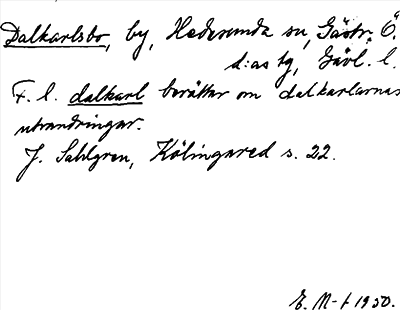 Dalkarlsbo, by, Hedesunda sn, Gästr. Ö.
d:as tg, Gävl. l.
F. l. dalkarl berättar om dalkarlarnas
utvandringar.
J. Sahlgren, Kölingared s. 22.
E. M-t 1950.